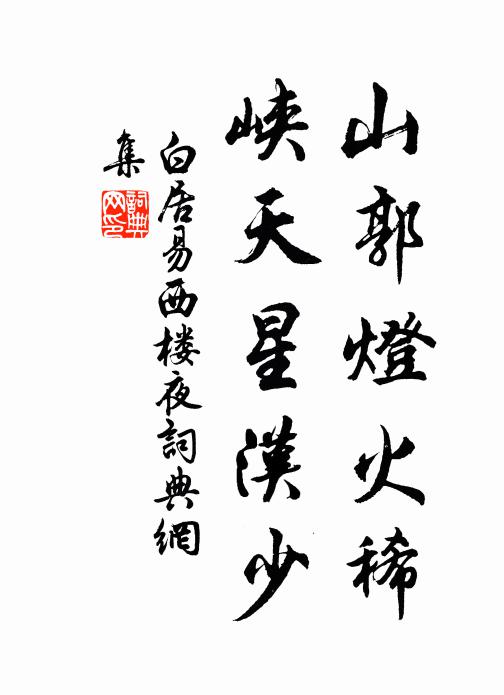 山郭燈火稀
峽天星漢少
白居易西楼夜詞典網
集
詞典网印